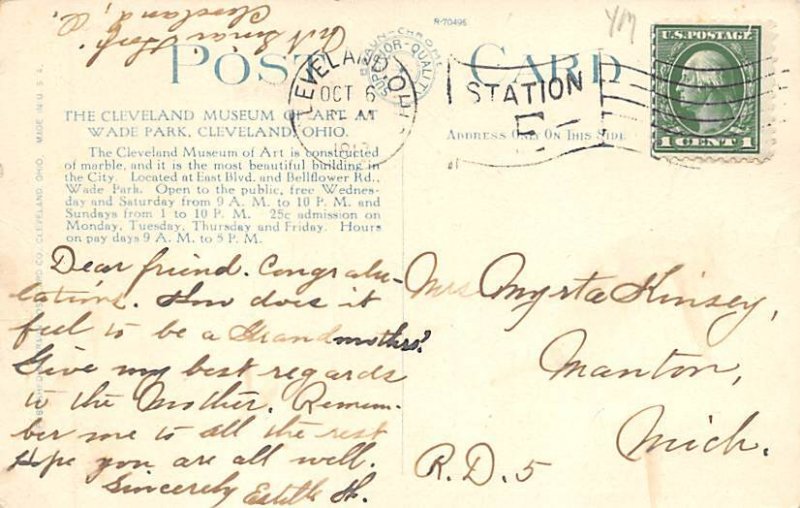 R-70495
YM
POST CARD
BRAUN-CHROME
SUPERIOR-QUALITY
CLEVELAND, OHIO
OCT 6
AM
STATION
E
U.S. POSTAGE
1 CENT 1
THE CLEVELAND MUSEUM OF ART AT
WADE PARK, CLEVELAND, OHIO.
The Cleveland Museum of Art is constructed
of marble, and it is the most beautiful building in
the City. Located at East Blvd. and Bellflower Rd.,
Wade Park. Open to the public, free Wednes-
day and Saturday from 9 A. M. to 10 P. M. and
Sundays from 1 to 10 P. M. 25c admission on
Monday, Tuesday, Thursday and Friday. Hours
on pay days 9 A. M. to 5 P. M.
ADDRESS ONLY ON THIS SIDE
CLEVELAND, OHIO. MADE IN U. S. A.
Dear friend. Congratu-
lations. How does it
feel to be a Grandmother?
Give my best regards
to the Mother. Remem-
ber me to all the rest
Hope you are all well.
Sincerely Estelle H.
Cleveland, O.
Mrs Myrta Kinsey,
Manton,
Mich.
R.D. 5